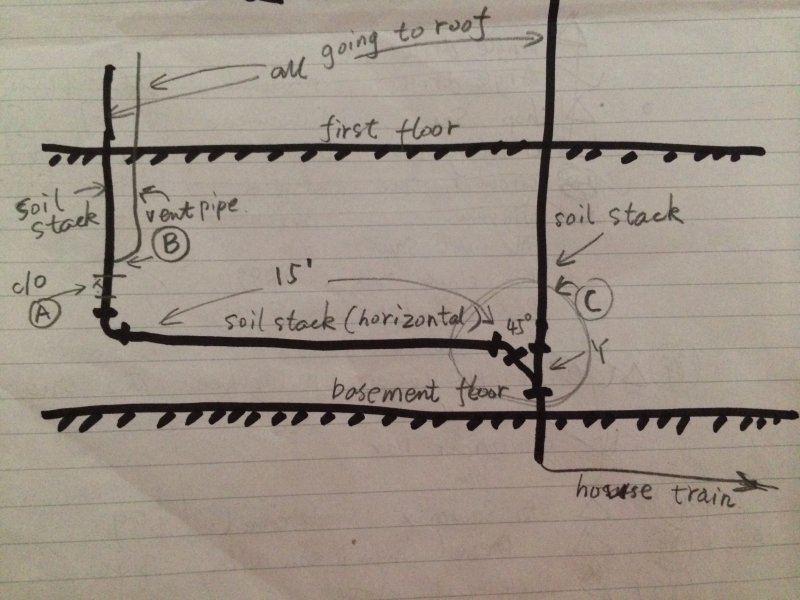 all going to roof
first floor
soil
stack
vent pipe
B
soil stack
c/o
A
15'
C
soil stack (horizontal)
45°
Y
basement floor
house train